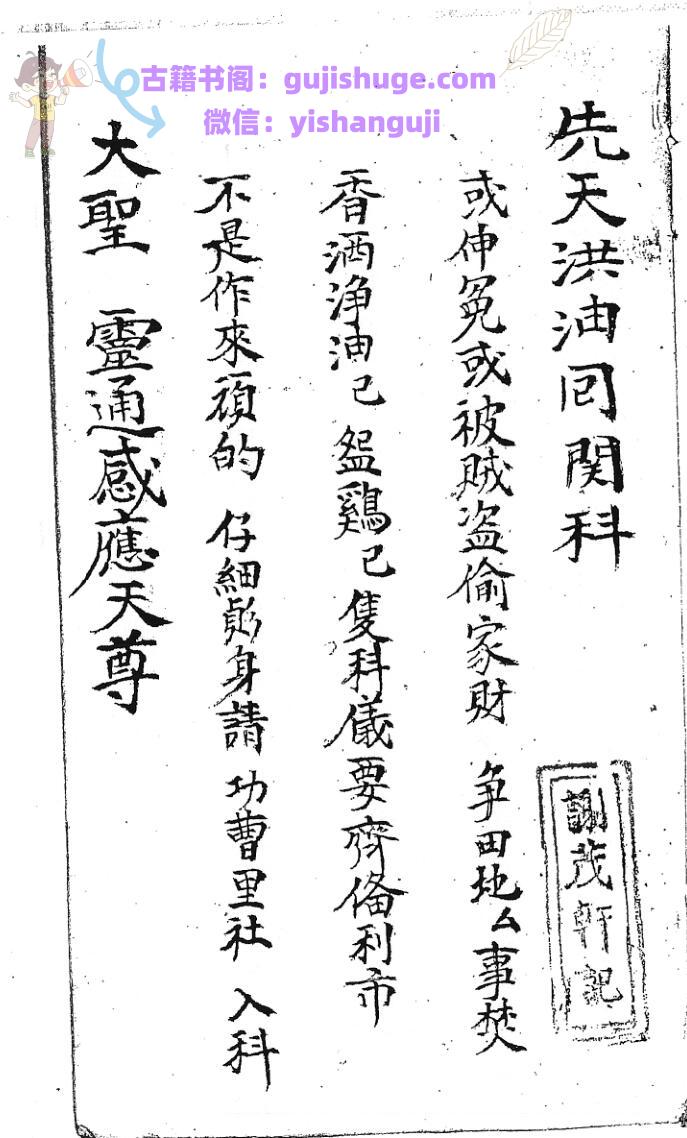 古籍书阁：gujishuge.com
微信：yishanguji
先天洪油囘関科
謝茂軒記
或伸冤或被賊盗偷家財 争田地厶事焚
香洒净油已 盌鷄已隻科儀要齊俻利市
不是作來項的 仔細身請 功曹里社 入科
大聖 靈通感應天尊